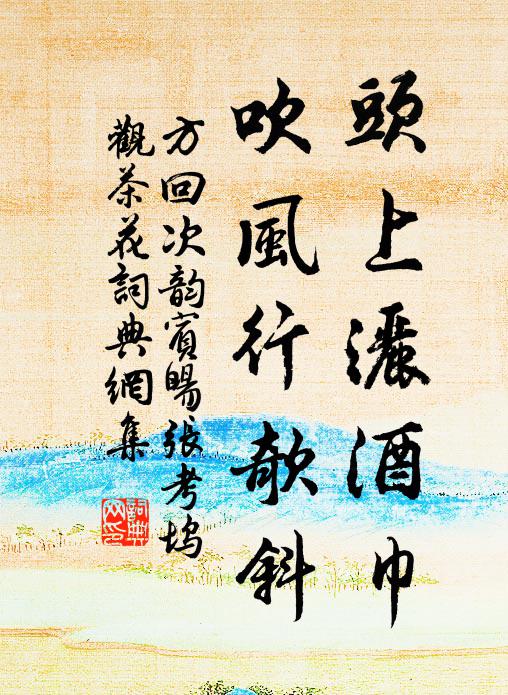 頭上灑酒巾
吹風行欹斜
方回次韵賓暘張考塢
觀茶花詞典網集